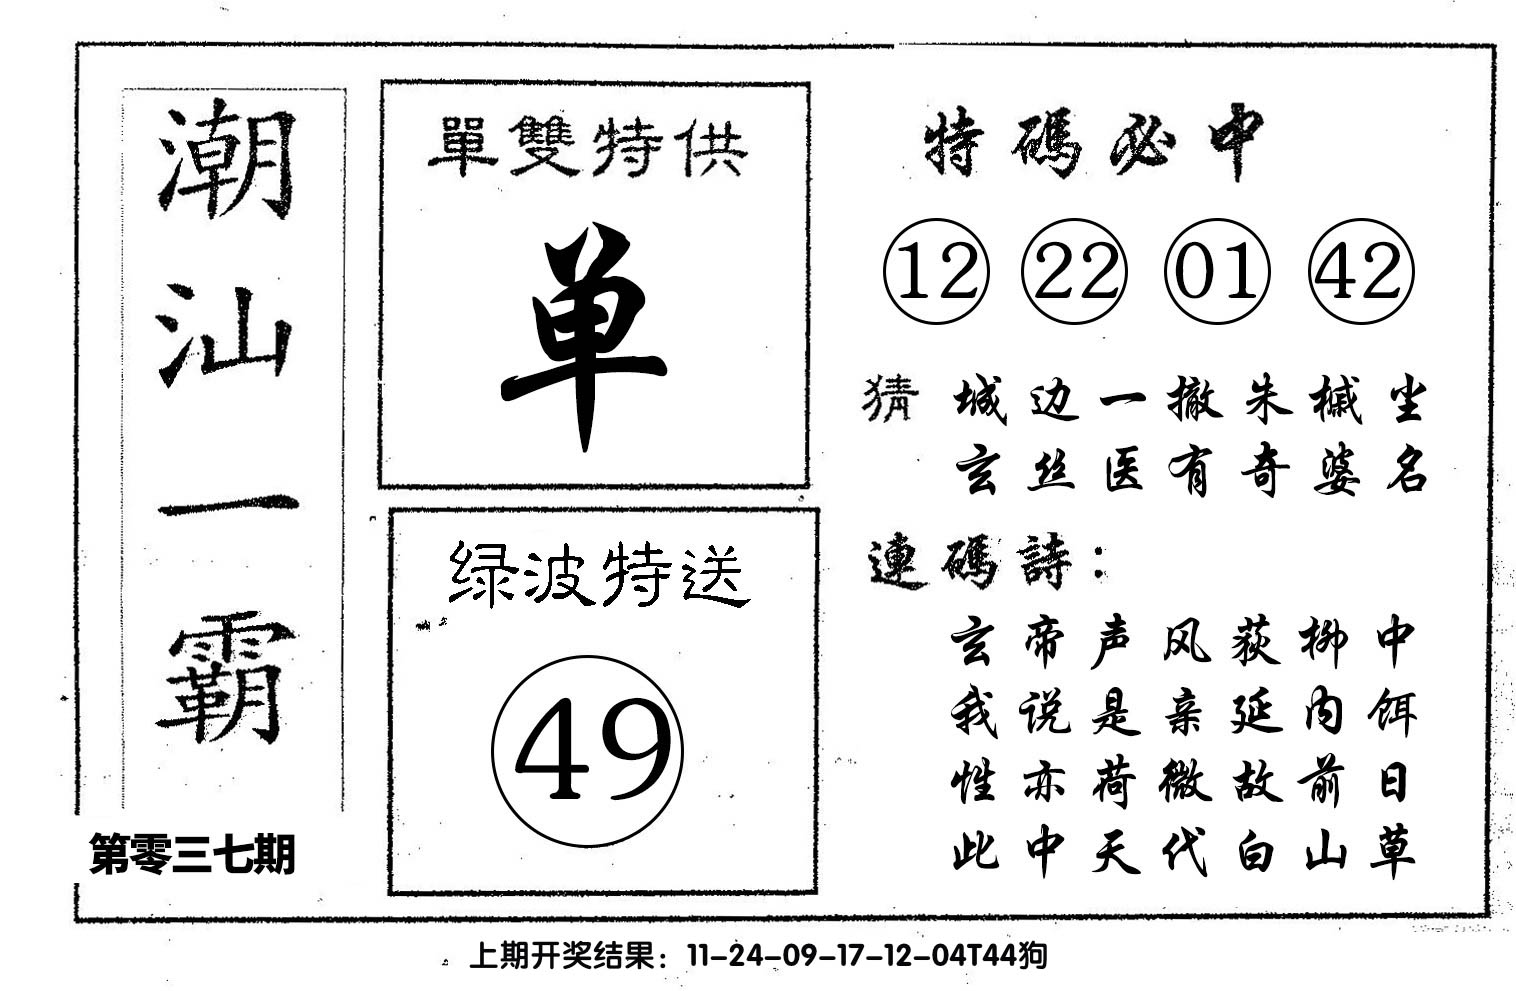 潮汕一霸
第零三七期
單雙特供
单
绿波特送
49
特碼必中
12 22 01 42
猜 城边一撤朱槭尘
玄丝医有奇婆名
連碼詩：
玄帝声风荻柳中
我说是亲延内饵
性亦荷微故前日
此中天代白山草
上期开奖结果：11-24-09-17-12-04T44狗